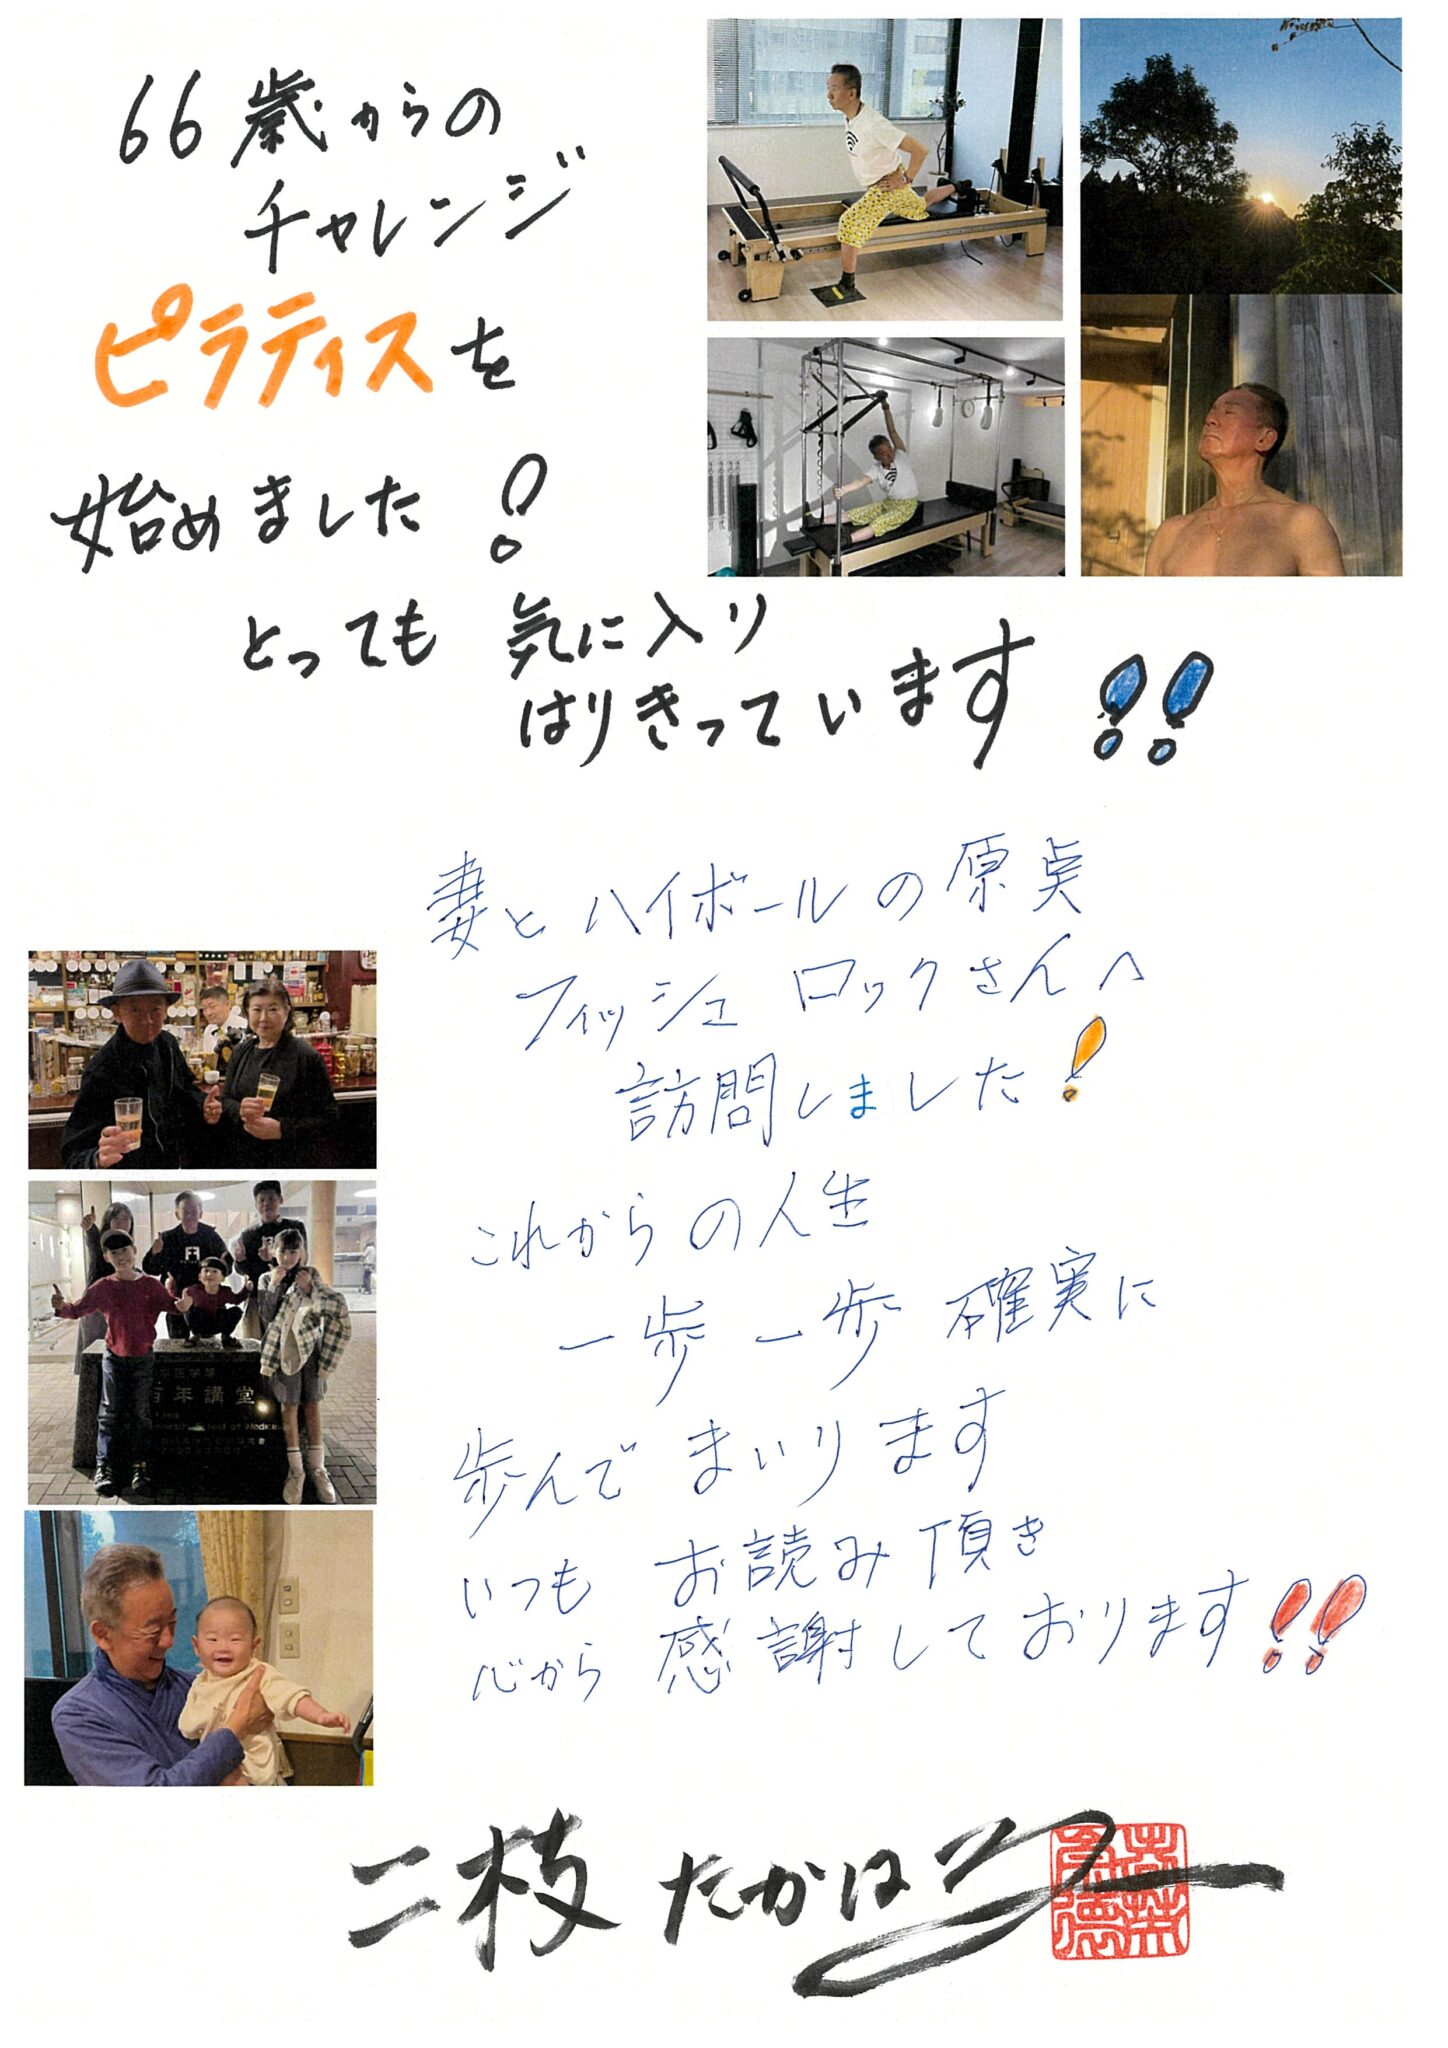 66歳からの
チャレンジ
ピラティスを
始めました!
とっても 気に入り
はりきっています!!
妻とハイボールの原点
フィッシュロックさんへ
訪問しました!
これからの人生
一歩一歩 確実に
歩んでまいります
いつも お読み頂き
心から 感謝しております!!
百年講堂
School of Medicine
二枝たかはる